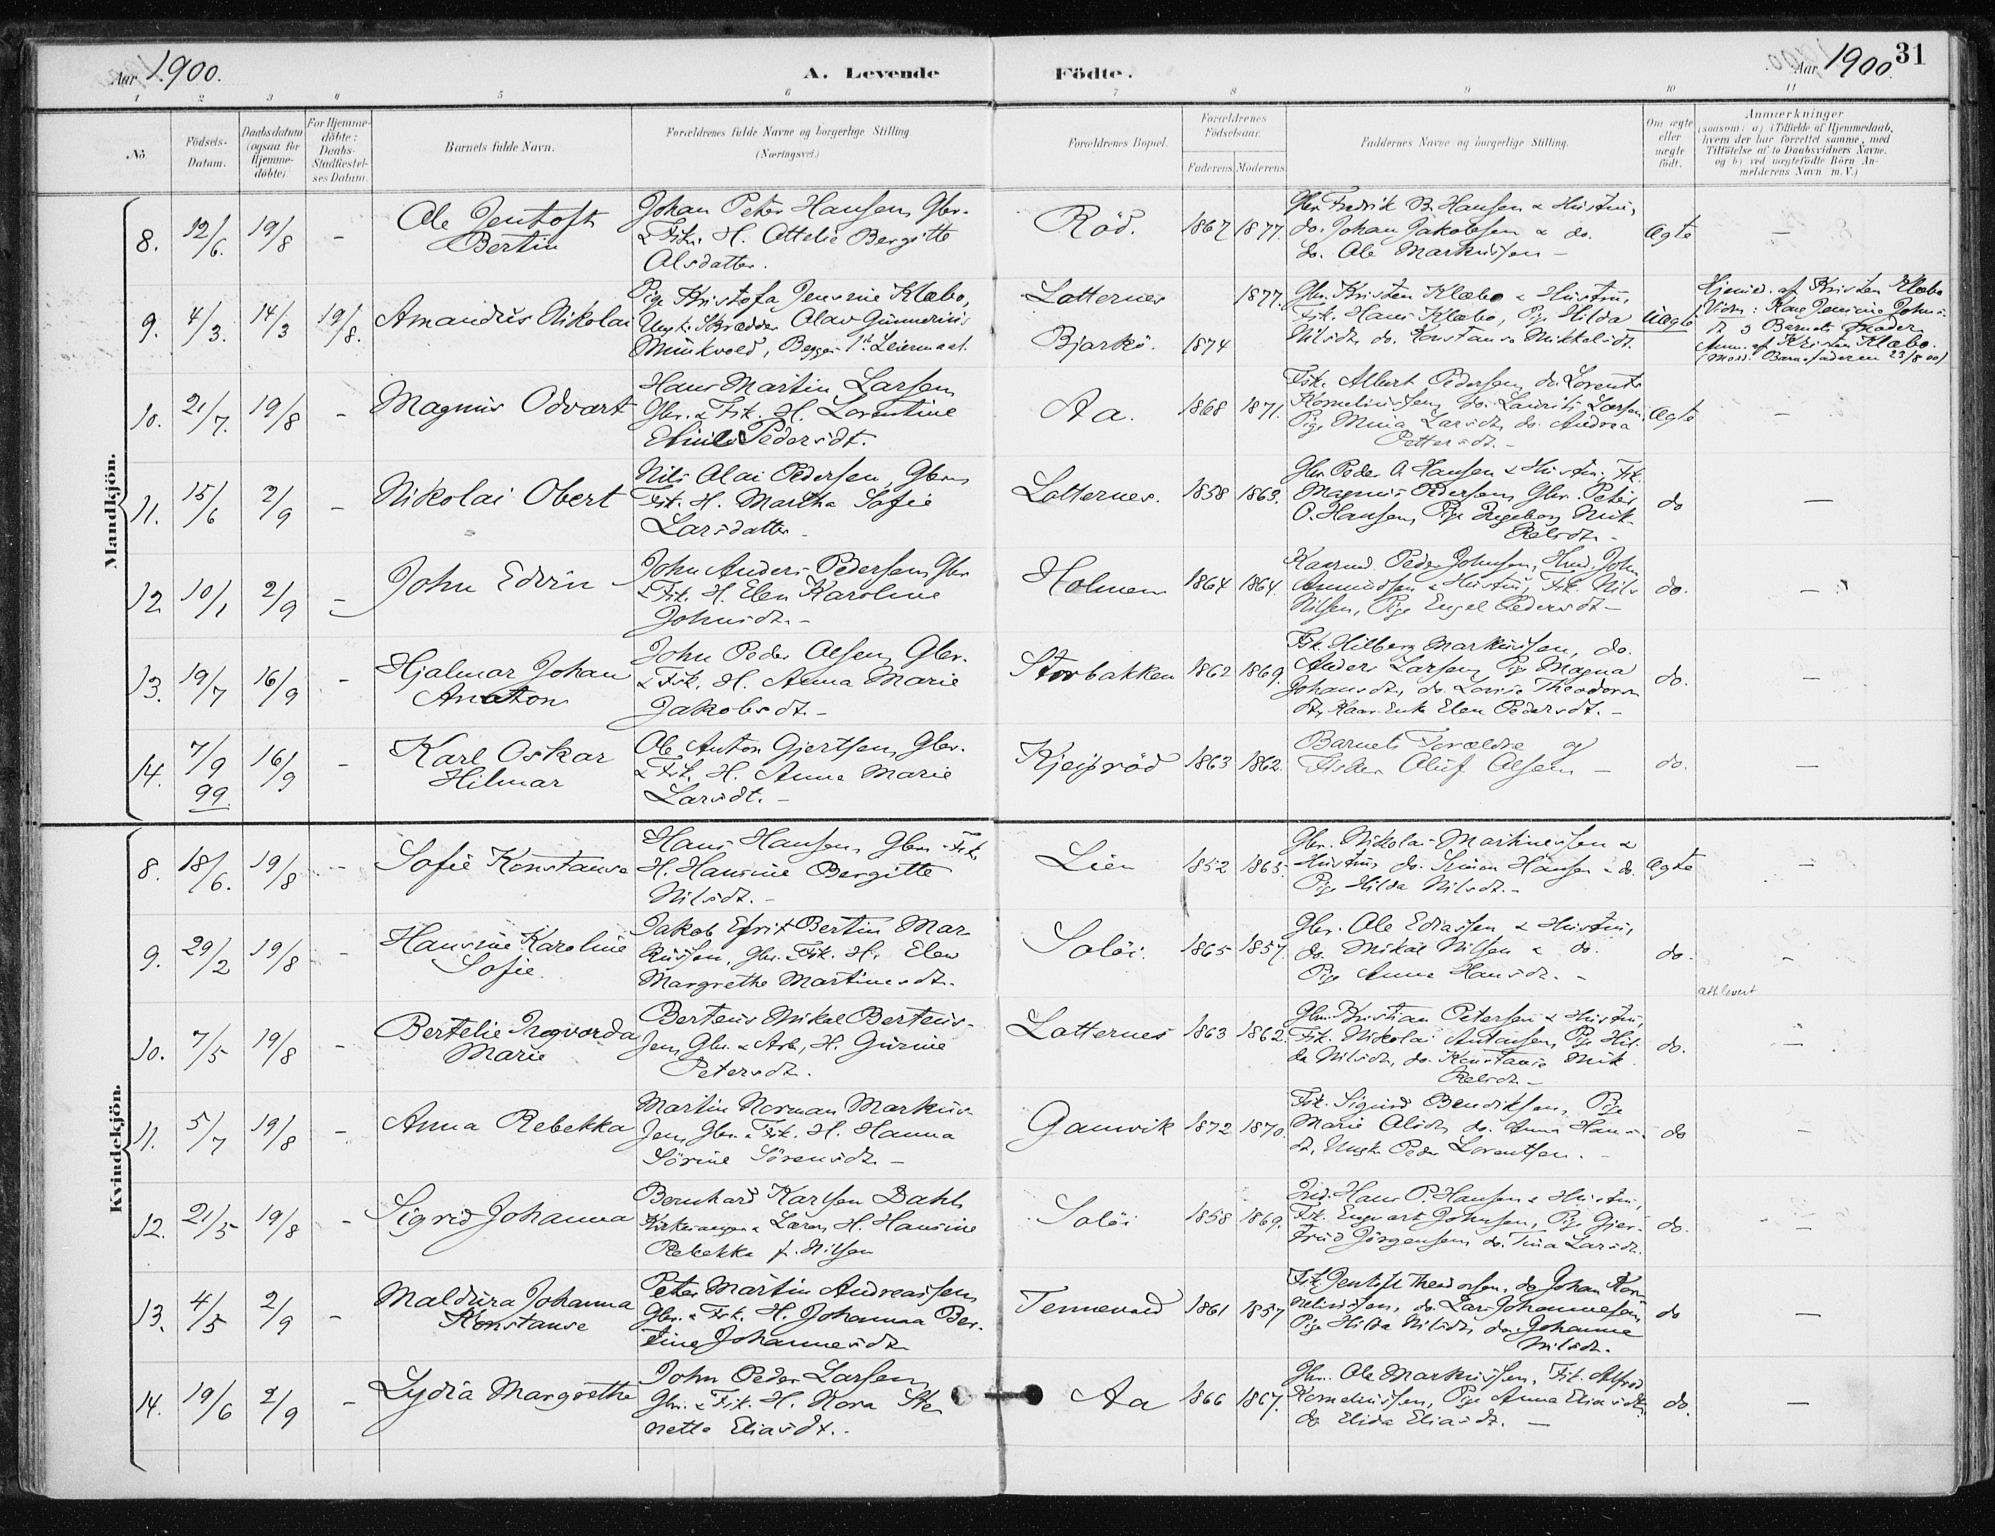 Aar 1900. A. Levende Födte. Aar 1900. 31
1 2 3 4 5 6 7 8 9 10 11
No Födsels-Datum. Daabsdatum (ogsaa for Hjemme-döbte) For Hjemme-döbte: Daabs-Stadfæstel-ses Datum. Barnets fulde Navn. Forældrenes fulde Navne og borgerlige Stilling. (Næringsvei.) Forældrenes Bopæl. Forældrenes Födselsaar. Faderens Moderens Faddernes Navne og borgerlige Stilling. Om ægte eller uægte födt. Anmærkninger (saasom: a) i Tilfælde af Hjemmedaab, hvem der har forrettet samme, med Tilföielse af to Daabsvidners Navne. og b) ved uægtefödte Börn An-melderens Navn m. V.)
Mandkjön.
8. 12/6. 19/8 - Ole Jentoft Bertin
Johan Peter Hansen, Gbr.
& Fisk. H. Attelie Bergitte
Olsdatter.
Röd. 1867 1877.
Gbr. Fredrik B. Hansen & Hustru,
do. Johan Jakobsen & do.
do. Ole Markussen -
Ægte -
9. 4/3. 14/3 19/8. Amandus Nikolai
Pige Kristofa Jensine Klæbo,
Ungk. Skrædder Olav Gunnerius
Munkvold, Begges 1st Leiermaal.
Lotternes 1877.
Bjarkö. 1874
Gbr. Kristen Klæbo & Hustru,
Fisk. Hans Klæbo, Pige Hilda
Nilsdt, do. Konstanse Mikkelsdt.
Uægte
Hjemmed. af Kristen Klæbo
Barnets Moder
Anm. af Kristen Klæbo.
10. 21/7. 19/8 - Magnus Odvart
Hans Martin Larsen,
Gbr. & Fisk. H. Lorentine
Pedersdt.
Aa. 1868 1871.
Fisk. Albert Pedersen, do. Lorents
Kornelиussen, do. Laurits Larsen,
Pige Mina Larsdt, do. Andrea
Pettersdt. -
Ægte -
11. 15/6 2/9 - Nikolai Obert
Nils Olai Pedersen, Gbr. &
Fisk. H. Martha Sofie
Larsdatter -
Lotternes. 1858 1863.
Gbr. Peder A. Hansen & Hustru, Fisk.
Magnus Pedersen, Gbr. Peter
O. Hansen, Pige Ingeborg Mik-
kelsdt. -
do -
12. 10/1 2/9 - John Edvin
John Anders Pedersen, Gbr.
& Fisk. H. Elen Karoline
Johnsdt. -
Holmen 1864 1864.
Kaarmd. Peder Johnsen, Hmd. John
Amundsen & Hustru, Fisk. Nils
Nilsen, Pige Engel Pedersdt -
do. -
13. 19/7 16/9 - Hjalmar Johan Anaton
John Peder Olsen, Gbr.
& Fisk. H. Anna Marie
Jakobsdt. -
Storbakken 1862 1869.
Fisk. Hilberg Markussen, do.
Anders Larsen, Pige Magna
Johansdt, do. Lovise Theodors
dt, Kaar-Enke Elen Pedersdt. -
do. -
14. 7/9 99. 16/9 - Karl Oskar Hilmar
Ole Anton Gjertsen, Gbr.
& Fisk. H. Anne Marie
Larsdt. -
Kjeiprød 1863 1862.
Barnets Forældre og
Fisker Oluf Olsen -
do. -
Kvindekjön.
8. 18/6. 19/8 - Sofie Konstanse
Hans Hansen, Gbr. & Fisk.
H. Hansine Bergitte
Nilsdt. -
Lien 1852 1865.
Gbr. Nikolai Martinussen &
Hustru, do. Simon Hansen & do.
Pige Hilda Nilsdt. -
Ægte -
9. 29/2 19/8 - Hansine Karoline Sofie.
Jakob Efrit Bertin Mar-
kussen, Gbr. Fisk. H. Elen
Margrethe Martinusdt.
Soløi. 1865 1857.
Gbr. Ole Eliassen & Hustru,
do. Mikal Nilsen & do.
Pige Anne Hansdt. -
do. -
10. 7/5 19/8 - Bertelie Ingvorda Marie
Berteus Mikal Berteus-
sen, Gbr. & Arb., H. Gurine
Petersdt.
Lotternes 1863 1862.
Gbr. Kristian Petersen & Hustru,
Fisk. Nikolai Antonsen, Pige Hil-
da Nilsdt, do. Konstanse Mik
kelsdt. -
do. -
11. 5/7 19/8 - Anna Rebekka
Martin Norman Markus-
sen, Gbr. & Fisk. H. Hanna
Sörine Sörensdt. -
Gamvik 1872 1870.
Fisk. Sigurd Bendiksen, Pige
Marie Olsdt, do. Anna Hans-
dt, Ungk. Peder Lorentsen. -
do -
12. 21/5 19/8 - Sigrid Johanna
Bernhard Karlsen Dahl,
Kirkesanger & Lærer, H. Hansine
Rebekka f. Nilsen
Soløi 1858 1869.
Hans P. Hansen & Hustru,
Fisk. Engvart Johnsen, Pige Gjer-
trud Jørgensen, do. Tina Larsdt.
do. -
13. 4/5 2/9 - Maldura Johanna Konstanse
Peter Martin Andreassen,
Gbr. & Fisk. H. Johanna Ber-
tine Johannesdt.
Tennevold 1861 1857
Fisk. Jentoft Theodorsen, do. Johan Kor-
neliussen, do. Lars Johannesen,
Pige Hilda Nilsdt, do. Johanne
Nilsdt.
do -
14. 19/6 2/9 - Lydia Margrethe
John Peder Larsen,
Gbr. & Fisk. H. Nora Ste
nette Eliasdt. -
Aa 1866 1867.
Gbr. Ole Markussen, Fisk. Alfred
Korneliussen, Pige Anna Eliasdt,
do. Elida Eliasdt. -
do. -